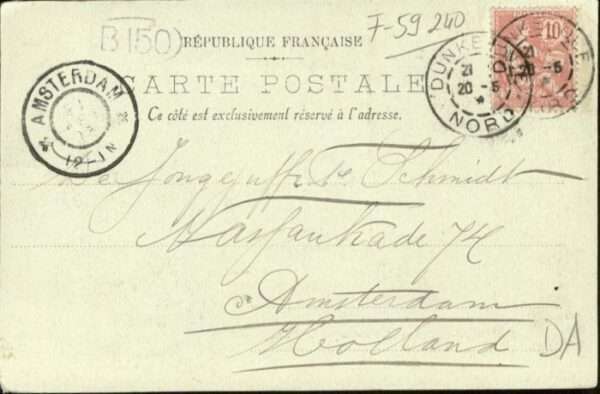 B150
F-59 240
RÉPUBLIQUE FRANÇAISE
10
CARTE POSTALE
Ce côté est exclusivement réservé à l'adresse.
AMSTERDAM
DUNKERQUE
21
20 - 5
NORD
De Jongejuffr. Schmidt
Nassaukade 74
Amsterdam
Holland
DA